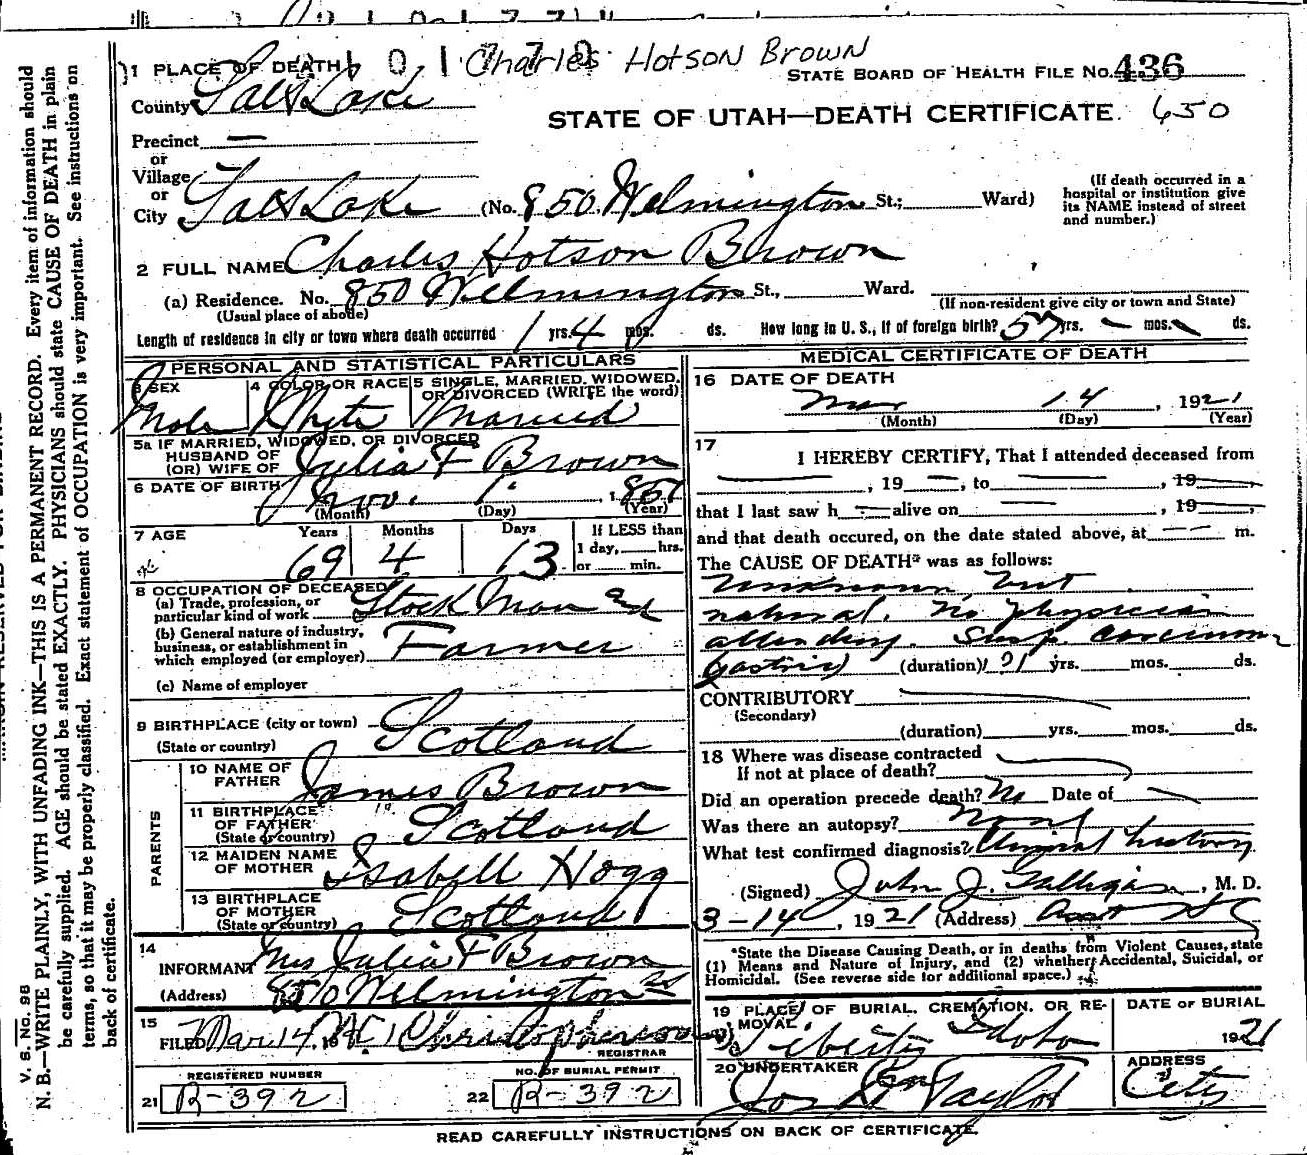 Charles Hotson Brown
1 PLACE OF DEATH
STATE BOARD OF HEALTH FILE NO. 436
County Salt Lake
STATE OF UTAH—DEATH CERTIFICATE. 650
Precinct —
or
Village —
or
City Salt Lake (No. 850 Welmington St.; Ward)
(If death occurred in a hospital or institution give its NAME instead of street and number.)
2 FULL NAME Charles Hotson Brown
(a) Residence. No. 850 Welmington St., Ward.
(Usual place of abode) (If non-resident give city or town and State)
Length of residence in city or town where death occurred 1 yrs. 4 mos. ds. How long in U. S., if of foreign birth? 57 yrs. — mos. ds.
PERSONAL AND STATISTICAL PARTICULARS
3 SEX Male
4 COLOR OR RACE White
5 SINGLE, MARRIED, WIDOWED, OR DIVORCED (WRITE the word) Married
5a IF MARRIED, WIDOWED, OR DIVORCED
HUSBAND OF
(OR) WIFE OF Julia F Brown
6 DATE OF BIRTH Nov. 1 1851
(Month) (Day) (Year)
7 AGE Years 69 Months 4 Days 13 If LESS than 1 day, hrs. or min.
8 OCCUPATION OF DECEASED
(a) Trade, profession, or particular kind of work Stock Man and
(b) General nature of industry, business, or establishment in which employed (or employer) Farmer
(c) Name of employer
9 BIRTHPLACE (city or town)
(State or country) Scotland
PARENTS
10 NAME OF FATHER James Brown
11 BIRTHPLACE OF FATHER (State or country) Scotland
12 MAIDEN NAME OF MOTHER Isabell Hogg
13 BIRTHPLACE OF MOTHER (State or country) Scotland
14
INFORMANT Mrs Julia F Brown
(Address) 850 Welmington
15
FILED Mar. 14, Christopherson
REGISTRAR
REGISTERED NUMBER
21 R-392
NO. OF BURIAL PERMIT
22 R-392
MEDICAL CERTIFICATE OF DEATH
16 DATE OF DEATH
Mar 14, 1921
(Month) (Day) (Year)
17
I HEREBY CERTIFY, That I attended deceased from
, 19 —, to , 19
that I last saw h — alive on , 19
and that death occured, on the date stated above, at — m.
The CAUSE OF DEATH* was as follows:
Unknown, but
natural. No physician
attending. Susp. Carcinoma
(gastric) (duration) yrs. mos. ds.
CONTRIBUTORY
(Secondary)
(duration) yrs. mos. ds.
18 Where was disease contracted
If not at place of death?
Did an operation precede death? No Date of
Was there an autopsy?
What test confirmed diagnosis? Clinical history
(Signed) John J. Galligan, M. D.
3-14, 1921 (Address)
*State the Disease Causing Death, or in deaths from Violent Causes, state
(1) Means and Nature of Injury, and (2) whether Accidental, Suicidal, or
Homicidal. (See reverse side for additional space.)
19 PLACE OF BURIAL, CREMATION, OR REMOVAL Liberty Idaho
DATE OF BURIAL
1921
20 UNDERTAKER Jos Wm Taylor
ADDRESS City
READ CAREFULLY INSTRUCTIONS ON BACK OF CERTIFICATE.
V. S. No. 98
N. B.—WRITE PLAINLY, WITH UNFADING INK—THIS IS A PERMANENT RECORD. Every item of information should
be carefully supplied. AGE should be stated EXACTLY. PHYSICIANS should state CAUSE OF DEATH in plain
terms, so that it may be properly classified. Exact statement of OCCUPATION is very important. See instructions on
back of certificate.